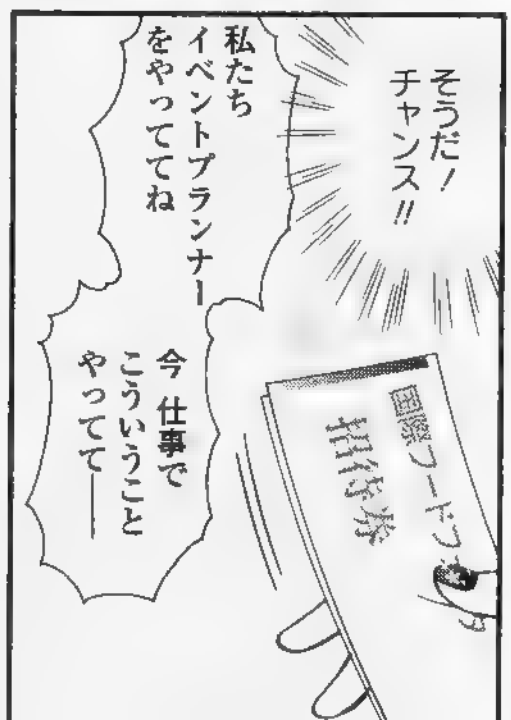 そうだ!
チャンス!!
私たち
イベントプランナー
をやっててね
今 仕事で
こういうこと
やってて――
国際フードフ
招待券